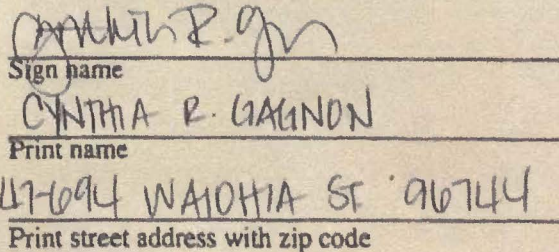 Cynthia R. Gagnon
Sign name
CYNTHIA R. GAGNON
Print name
47-694 WAIOHIA ST 96744
Print street address with zip code